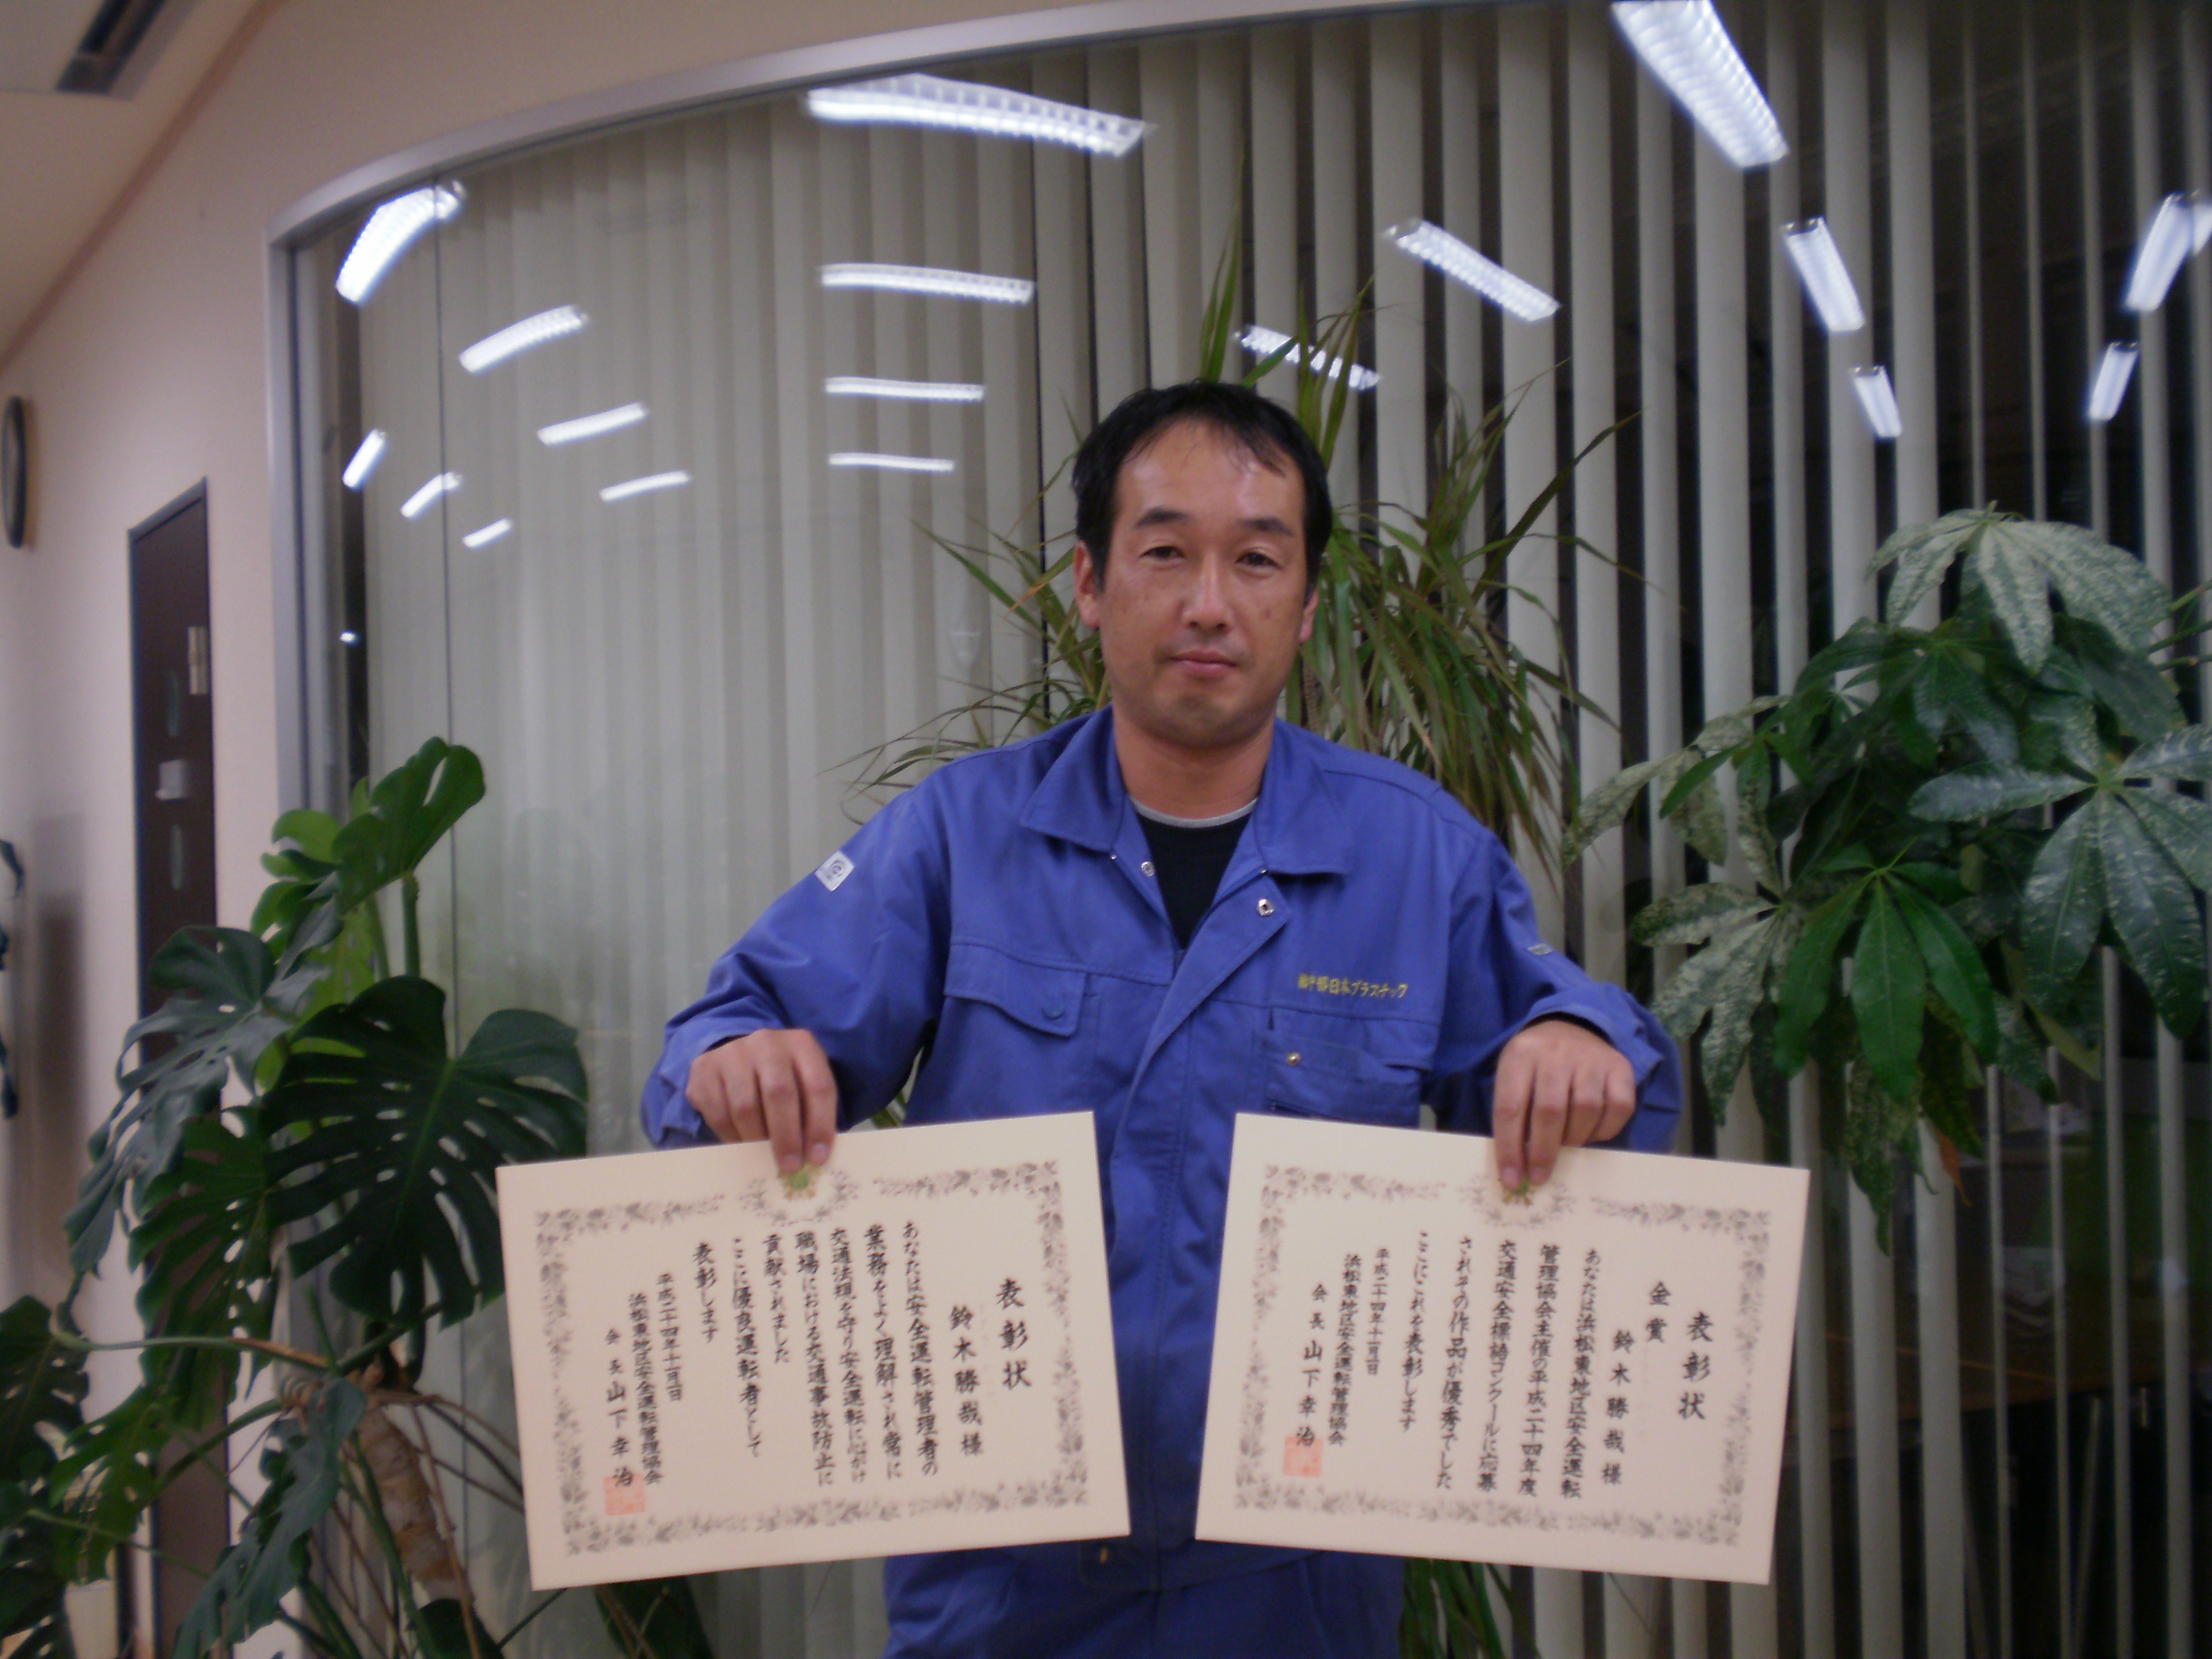 ㈱中部日本プラスチック
表彰状
鈴木勝哉様
あなたは安全運転管理者の
業務をよく理解され常に
交通法規を守り安全運転に心がけ
職場における交通事故防止に
貢献されました
ここに優良運転者として
表彰します
平成二十四年十一月一日
浜松東地区安全運転管理協会
会長山下幸治
表彰状
金賞
鈴木勝哉様
あなたは浜松東地区安全運転
管理協会主催の平成二十四年度
交通安全標語コンクールに応募
されその作品が優秀でした
ここにこれを表彰します
平成二十四年十一月一日
浜松東地区安全運転管理協会
会長山下幸治